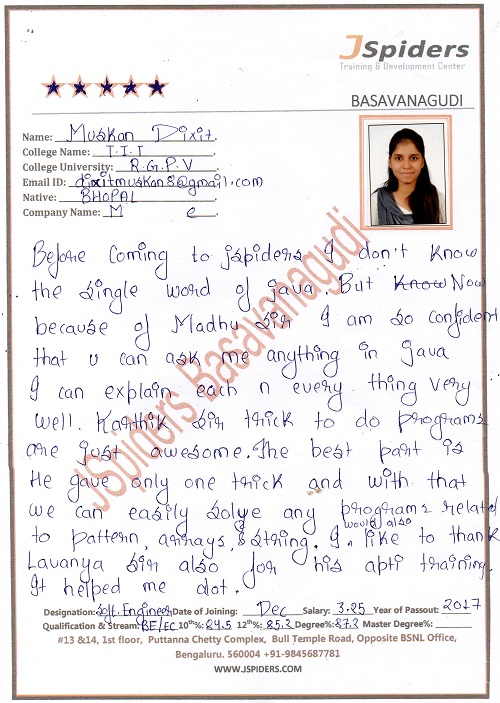 JSpiders
Training & Development Center
BASAVANAGUDI
Name: Muskan Dixit.
College Name: T.I.T
College University: R.G.P.V
Email ID: dixitmuskan8@gmail.com
Native: BHOPAL
Company Name: M e
Before Coming to jspiders I don't know
the single word of java. But Know Now
because of Madhu sir I am so confident
that u can ask me anything in java
I can explain each n every thing very
well. Karthik sir trick to do programs
are just awesome. The best part is
He gave only one trick and with that
we can easily solve any programs related
to pattern, arrays, & string. I would also like to thank
Lavanya sir also for his apti training.
It helped me alot.
JSpiders Basavanagudi
Designation: Soft. Engineer Date of Joining: Dec Salary: 3.25 Year of Passout: 2017
Qualification & Stream: BE/EC 10th%: 84.5 12th%: 85.2 Degree%: 87.2 Master Degree%:
#13 &14, 1st floor, Puttanna Chetty Complex, Bull Temple Road, Opposite BSNL Office,
Bengaluru. 560004 +91-9845687781
WWW.JSPIDERS.COM